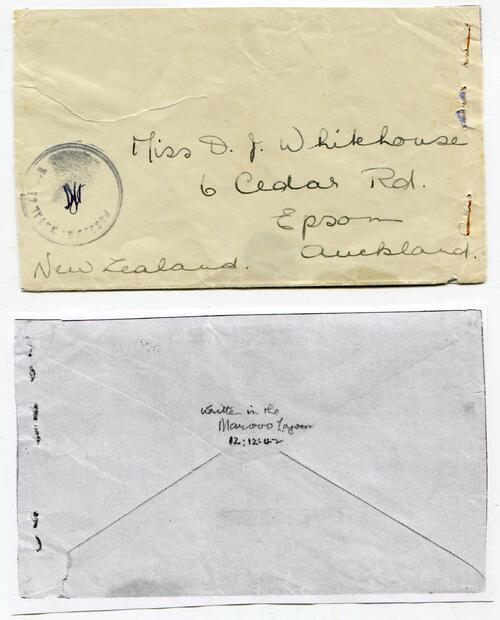 Miss D. J. Whitehouse
6 Cedar Rd.
Epsom
Auckland.
New Zealand.
PASSED BY
written in the
Marovo Lagoon
12:12:42